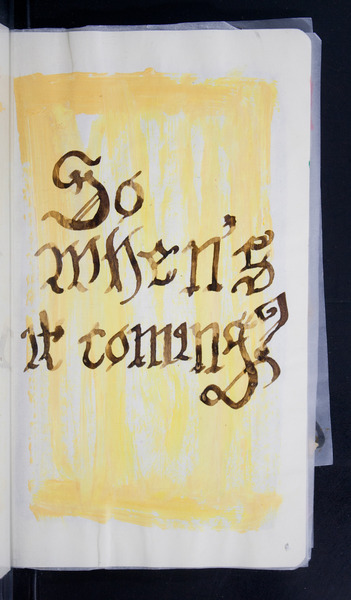 So
when's
it coming?